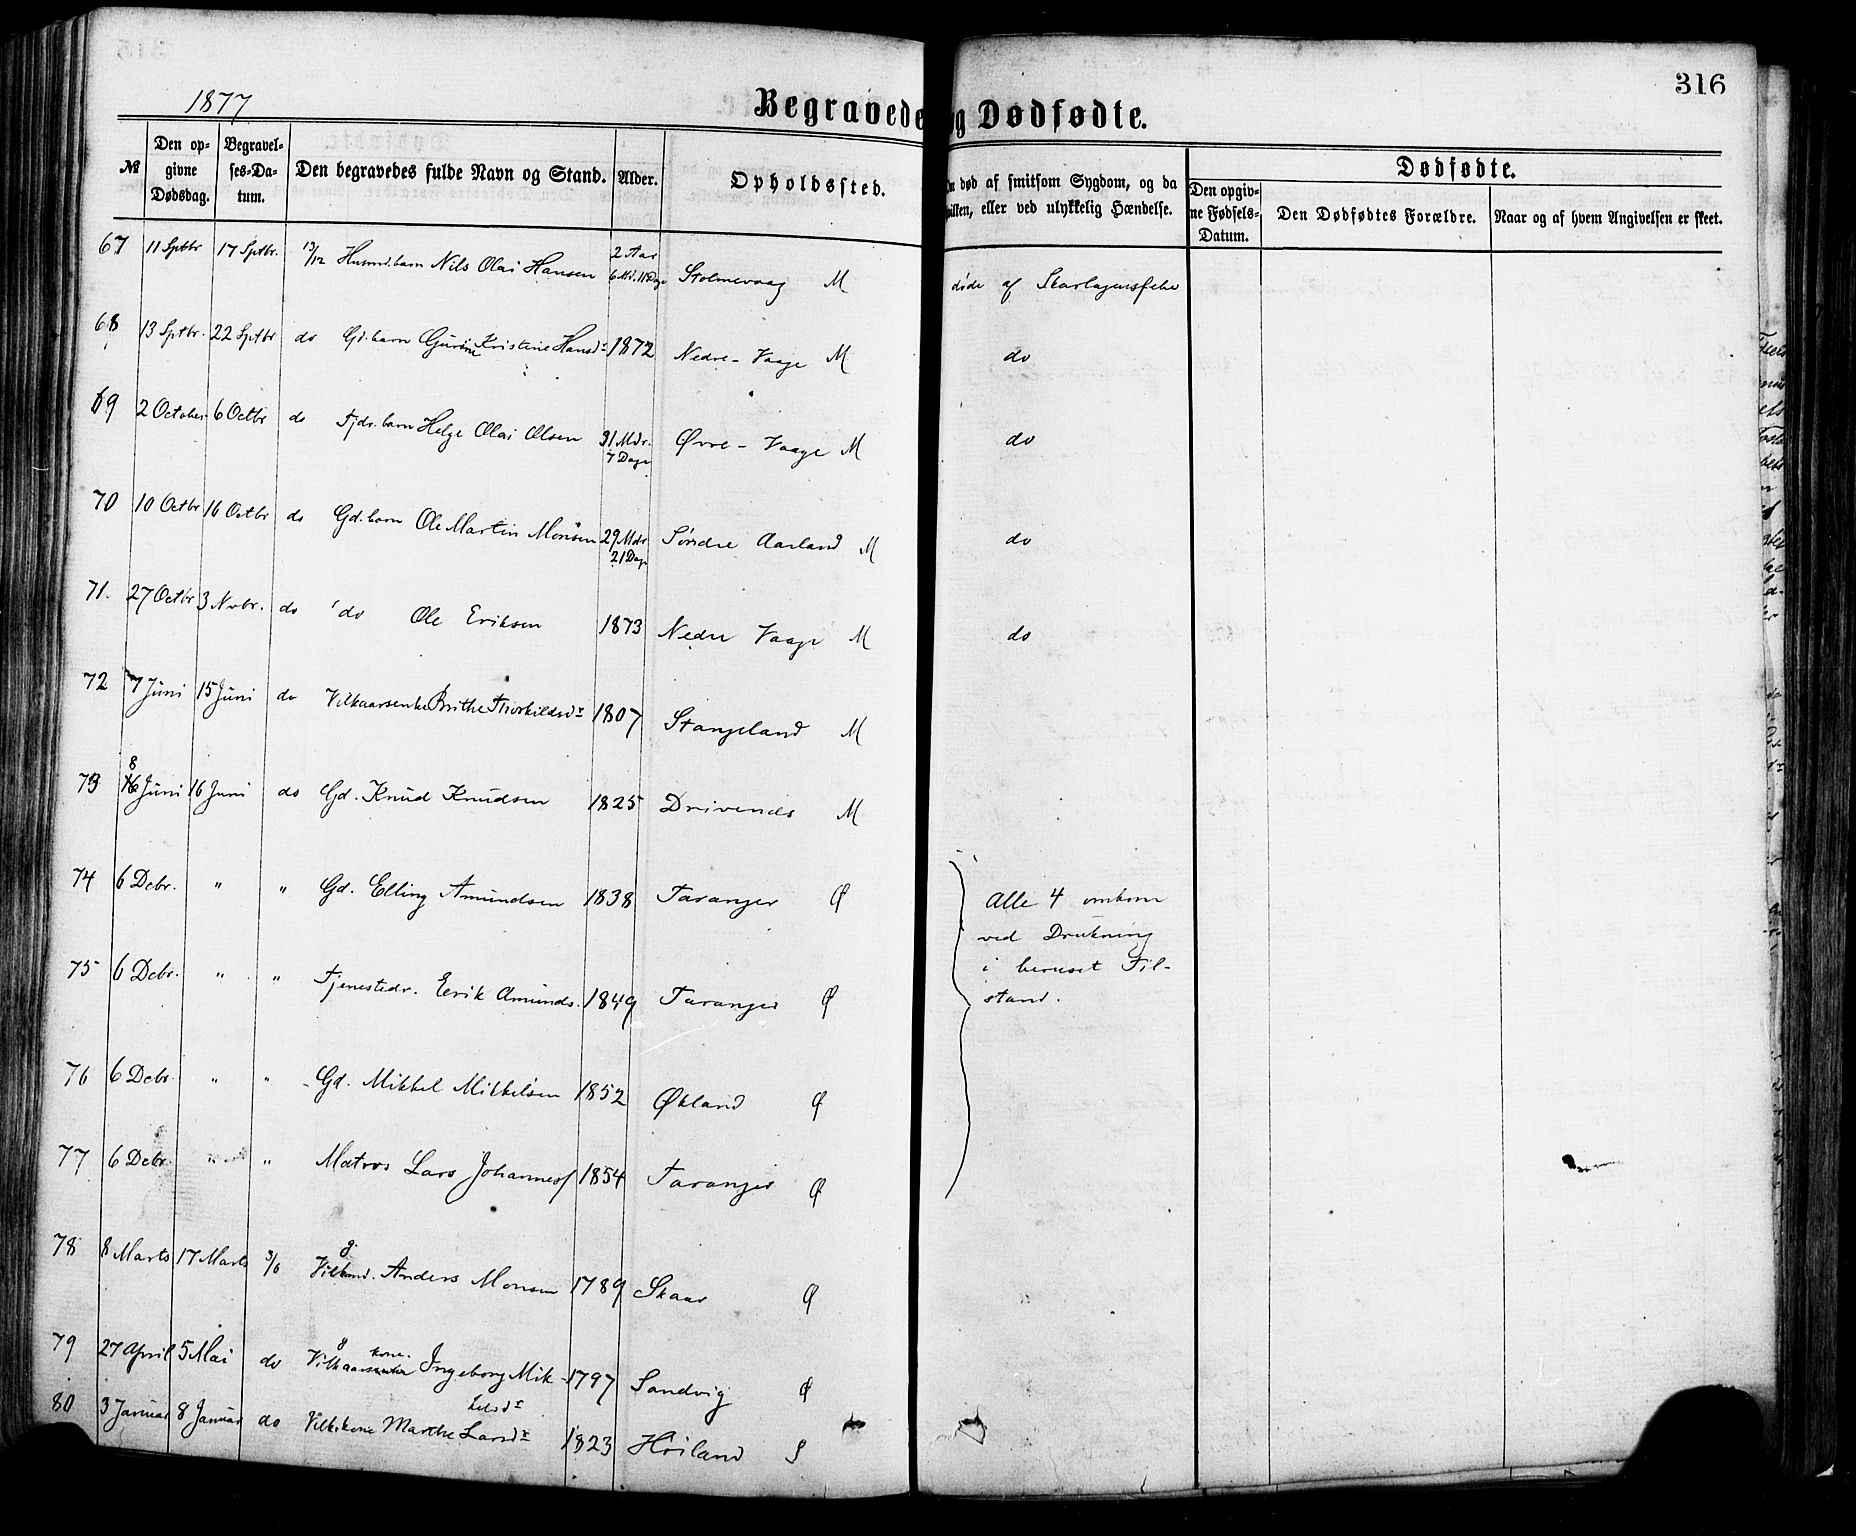 316
1877
Begravede og Dødfødte.
№
Den opgivne Dødsdag.
Begravelses-Datum.
Den begravedes fulde Navn og Stand.
Alder.
Opholdssted.
død af smitsom Sygdom, og da
eller ved ulykkelig Hændelse.
Dødfødte.
Den opgivne Fødsels-Datum.
Den Dødfødtes Forældre.
Naar og af hvem Angivelsen er skeet.
67 11 Sptbr 17 Sptbr. 13/12 Husmd.barn Nils Olai Hansen 2 Aar 6 Md. 11 Dage Stolmevaag M døde af Skarlagensfeber
68 13 Sptbr. 22 Sptbr do Gd.barn Gurine Kristine Hansdr 1872 Nedre-Vaage M do
69 2 October 6 Octbr do Tjdr.barn Helge Olai Olsen 31 Mdr. 7 Dage Øvre-Vaage M do
70 10 Octbr 16 Octbr do Gd.barn Ole Martin Monsen 29 Mdr 21 Dage Søndre Aarland M do
71. 27 Octbr 3 Nvbr. do do Ole Eriksen 1873 Nedre Vaage M do
72 7 Juni 15 Juni do Vilkaarsenke Brithe Thorkildsdr 1807 Stangeland M
73 8 Juni 16 Juni do Gd. Knud Knudsen 1825 Drivenes M
74 6 Debr. " " Gd. Elling Amundsen 1838 Taranger Ø
75 6 Debr. " " Tjenestedr. Eerik Amunds. 1849 Taranger Ø
76 6 Debr. " " Gd. Mikkel Mikkelsen 1852 Økland Ø
77 6 Debr. " " Matros Lars Johannesf 1854 Taranger Ø
Alle 4 omkom
ved Drukning
i beruset Til-
stand.
78 8 Marts 17 Marts 3/6 g. Vilkmd. Anders Monsen 1789 Skaar Ø
79 27 April 5 Mai do g Vilkaars kone. Ingeborg Mik-
kelsdr 1797 Sandvig Ø
80 3 Januar 8 Januar do Vilkskone Marthe Larsdr 1823 Høiland S